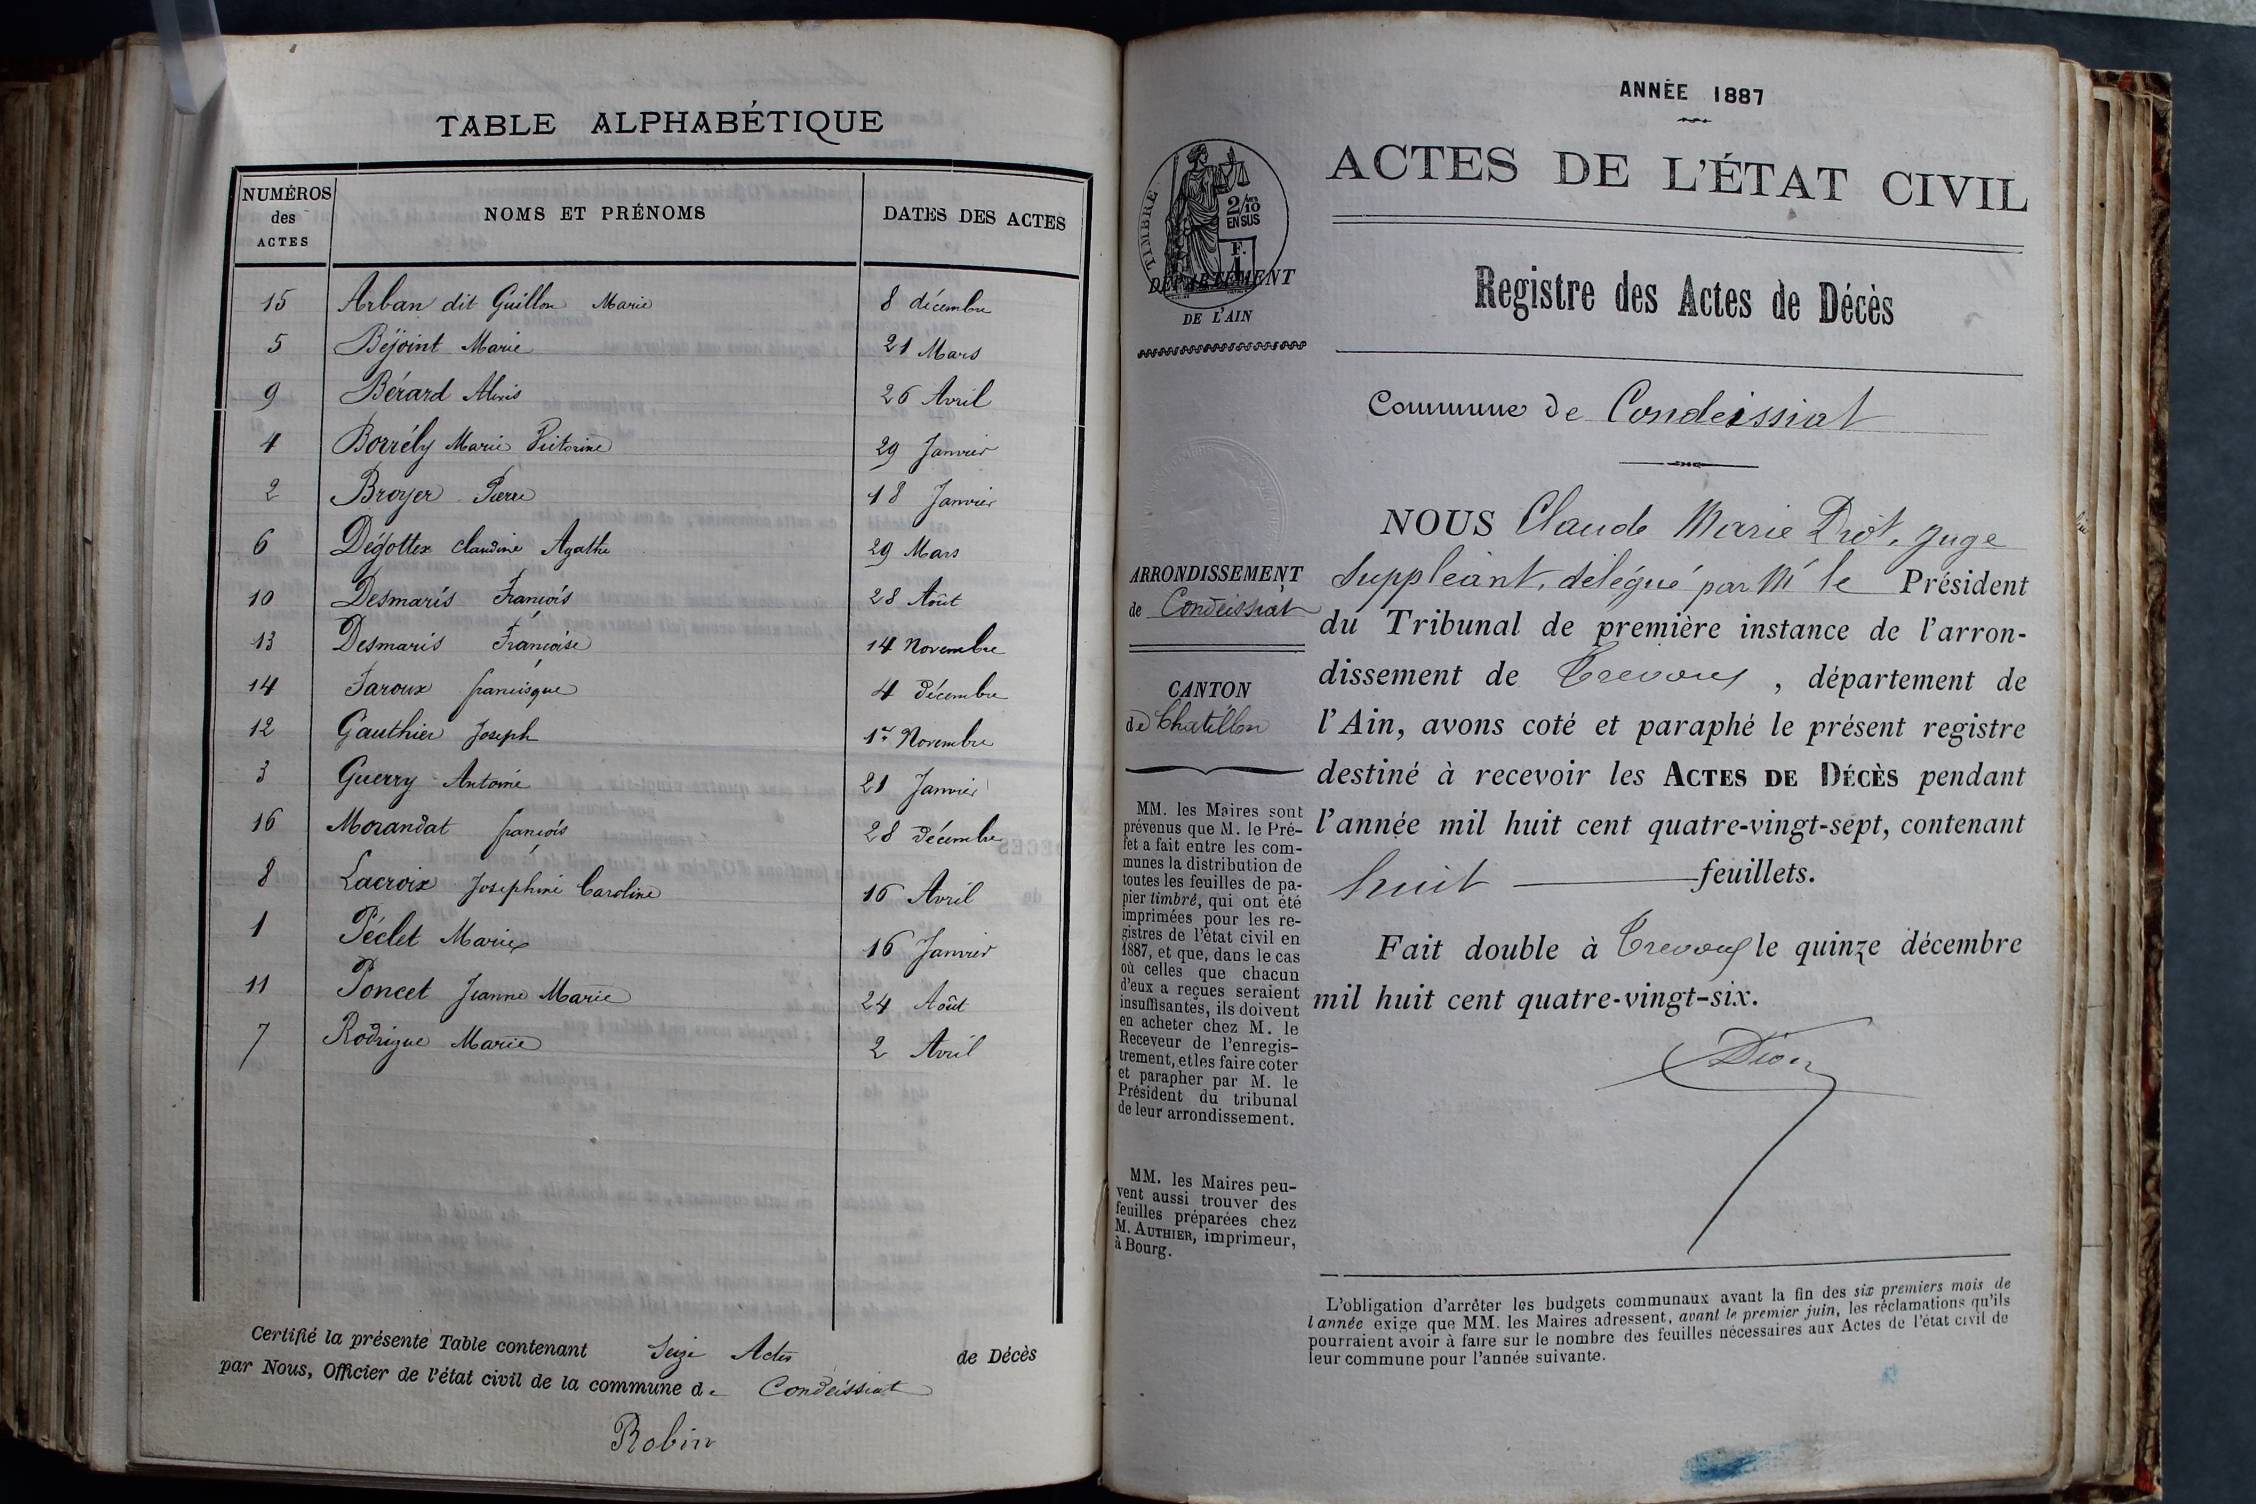 TABLE ALPHABÉTIQUE
NUMÉROS des ACTES NOMS ET PRÉNOMS DATES DES ACTES
15 Arban dit Guillon Marie 8 décembre
5 Béjoint Marie 21 Mars
9 Bérard Alexis 26 Avril
4 Borrély Marie Victorine 29 Janvier
2 Broyer Pierre 18 Janvier
6 Dégottex Claudine Agathe 29 Mars
10 Desmaris François 28 Août
13 Desmaris Françoise 14 Novembre
14 Faroux françisque 4 décembre
12 Gauthier Joseph 1er Novembre
3 Guerry Antoine 21 Janvier
16 Morandat françois 28 décembre
8 Lacroix Joséphine Caroline 16 Avril
1 Péclet Marie 16 Janvier
11 Poncet Jeanne Marie 24 Août
7 Rodrigue Marie 2 Avril
Certifié la présente Table contenant Seize Actes de Décès
par Nous, Officier de l'état civil de la commune de Condeissiat
Robin
ANNÉE 1887
ACTES DE L'ÉTAT CIVIL
TIMBRE
2/10
EN SUS
F.
1
DÉPARTEMENT
DE L'AIN
Registre des Actes de Décès
Commune de Condeissiat
NOUS Claude Marie juge
Suppléant, délégué par Mr le Président
du Tribunal de première instance de l'arron-
dissement de Trevoux, département de
l'Ain, avons coté et paraphé le présent registre
destiné à recevoir les ACTES DE DÉCÈS pendant
l'année mil huit cent quatre-vingt-sept, contenant
huit feuillets.
Fait double à Trevoux le quinze décembre
mil huit cent quatre-vingt-six.
ARRONDISSEMENT
de Condeissiat
CANTON
de Chatillon
MM. les Maires sont
prévenus que M. le Pré-
fet a fait entre les com-
munes la distribution de
toutes les feuilles de pa-
pier timbré, qui ont été
imprimées pour les re-
gistres de l'état civil en
1887, et que, dans le cas
où celles que chacun
d'eux a reçues seraient
insuffisantes, ils doivent
en acheter chez M. le
Receveur de l'enregis-
trement, et les faire coter
et parapher par M. le
Président du tribunal
de leur arrondissement.
MM. les Maires peu-
vent aussi trouver des
feuilles préparées chez
M. AUTHIER, imprimeur,
à Bourg.
L'obligation d'arrêter les budgets communaux avant la fin des six premiers mois de
l'année exige que MM. les Maires adressent, avant le premier juin, les réclamations qu'ils
pourraient avoir à faire sur le nombre des feuilles nécessaires aux Actes de l'état civil de
leur commune pour l'année suivante.